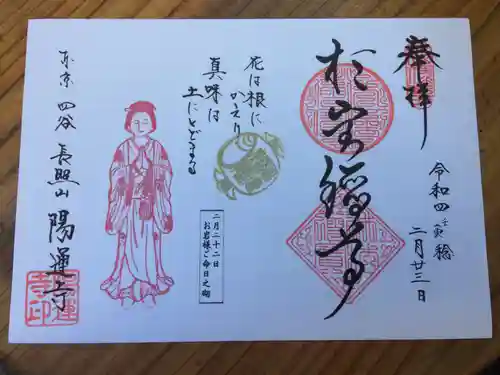 奉拝
令和四壬寅稔
二月廿三日
於岩尊
花は根に
かえり
真味は
土にとどまる
二月二十二日
お岩様ご命日之砌
東京 四谷 長照山 陽運寺